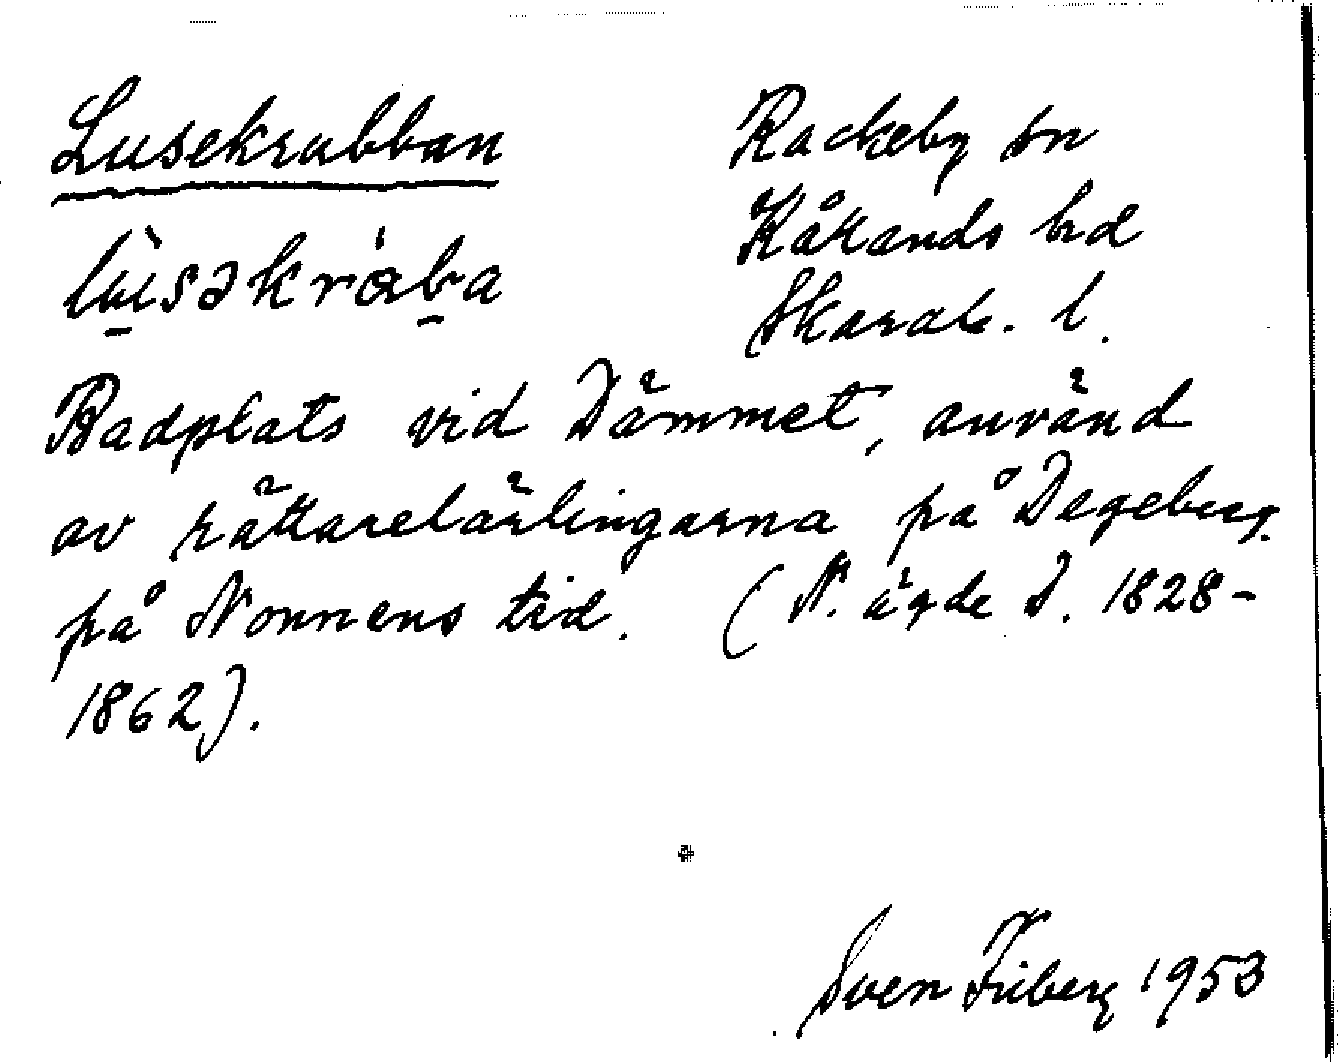 Lusekrubban
Rackeby sn
lùsəkrúba
Kållands hd
Skarab. l.
Badplats vid Dämmet, använd
av rättarelärlingarna på Degeberg.
på Nonnens tid. (N. ägde D. 1828-
1862).
Sven Friberg 1953